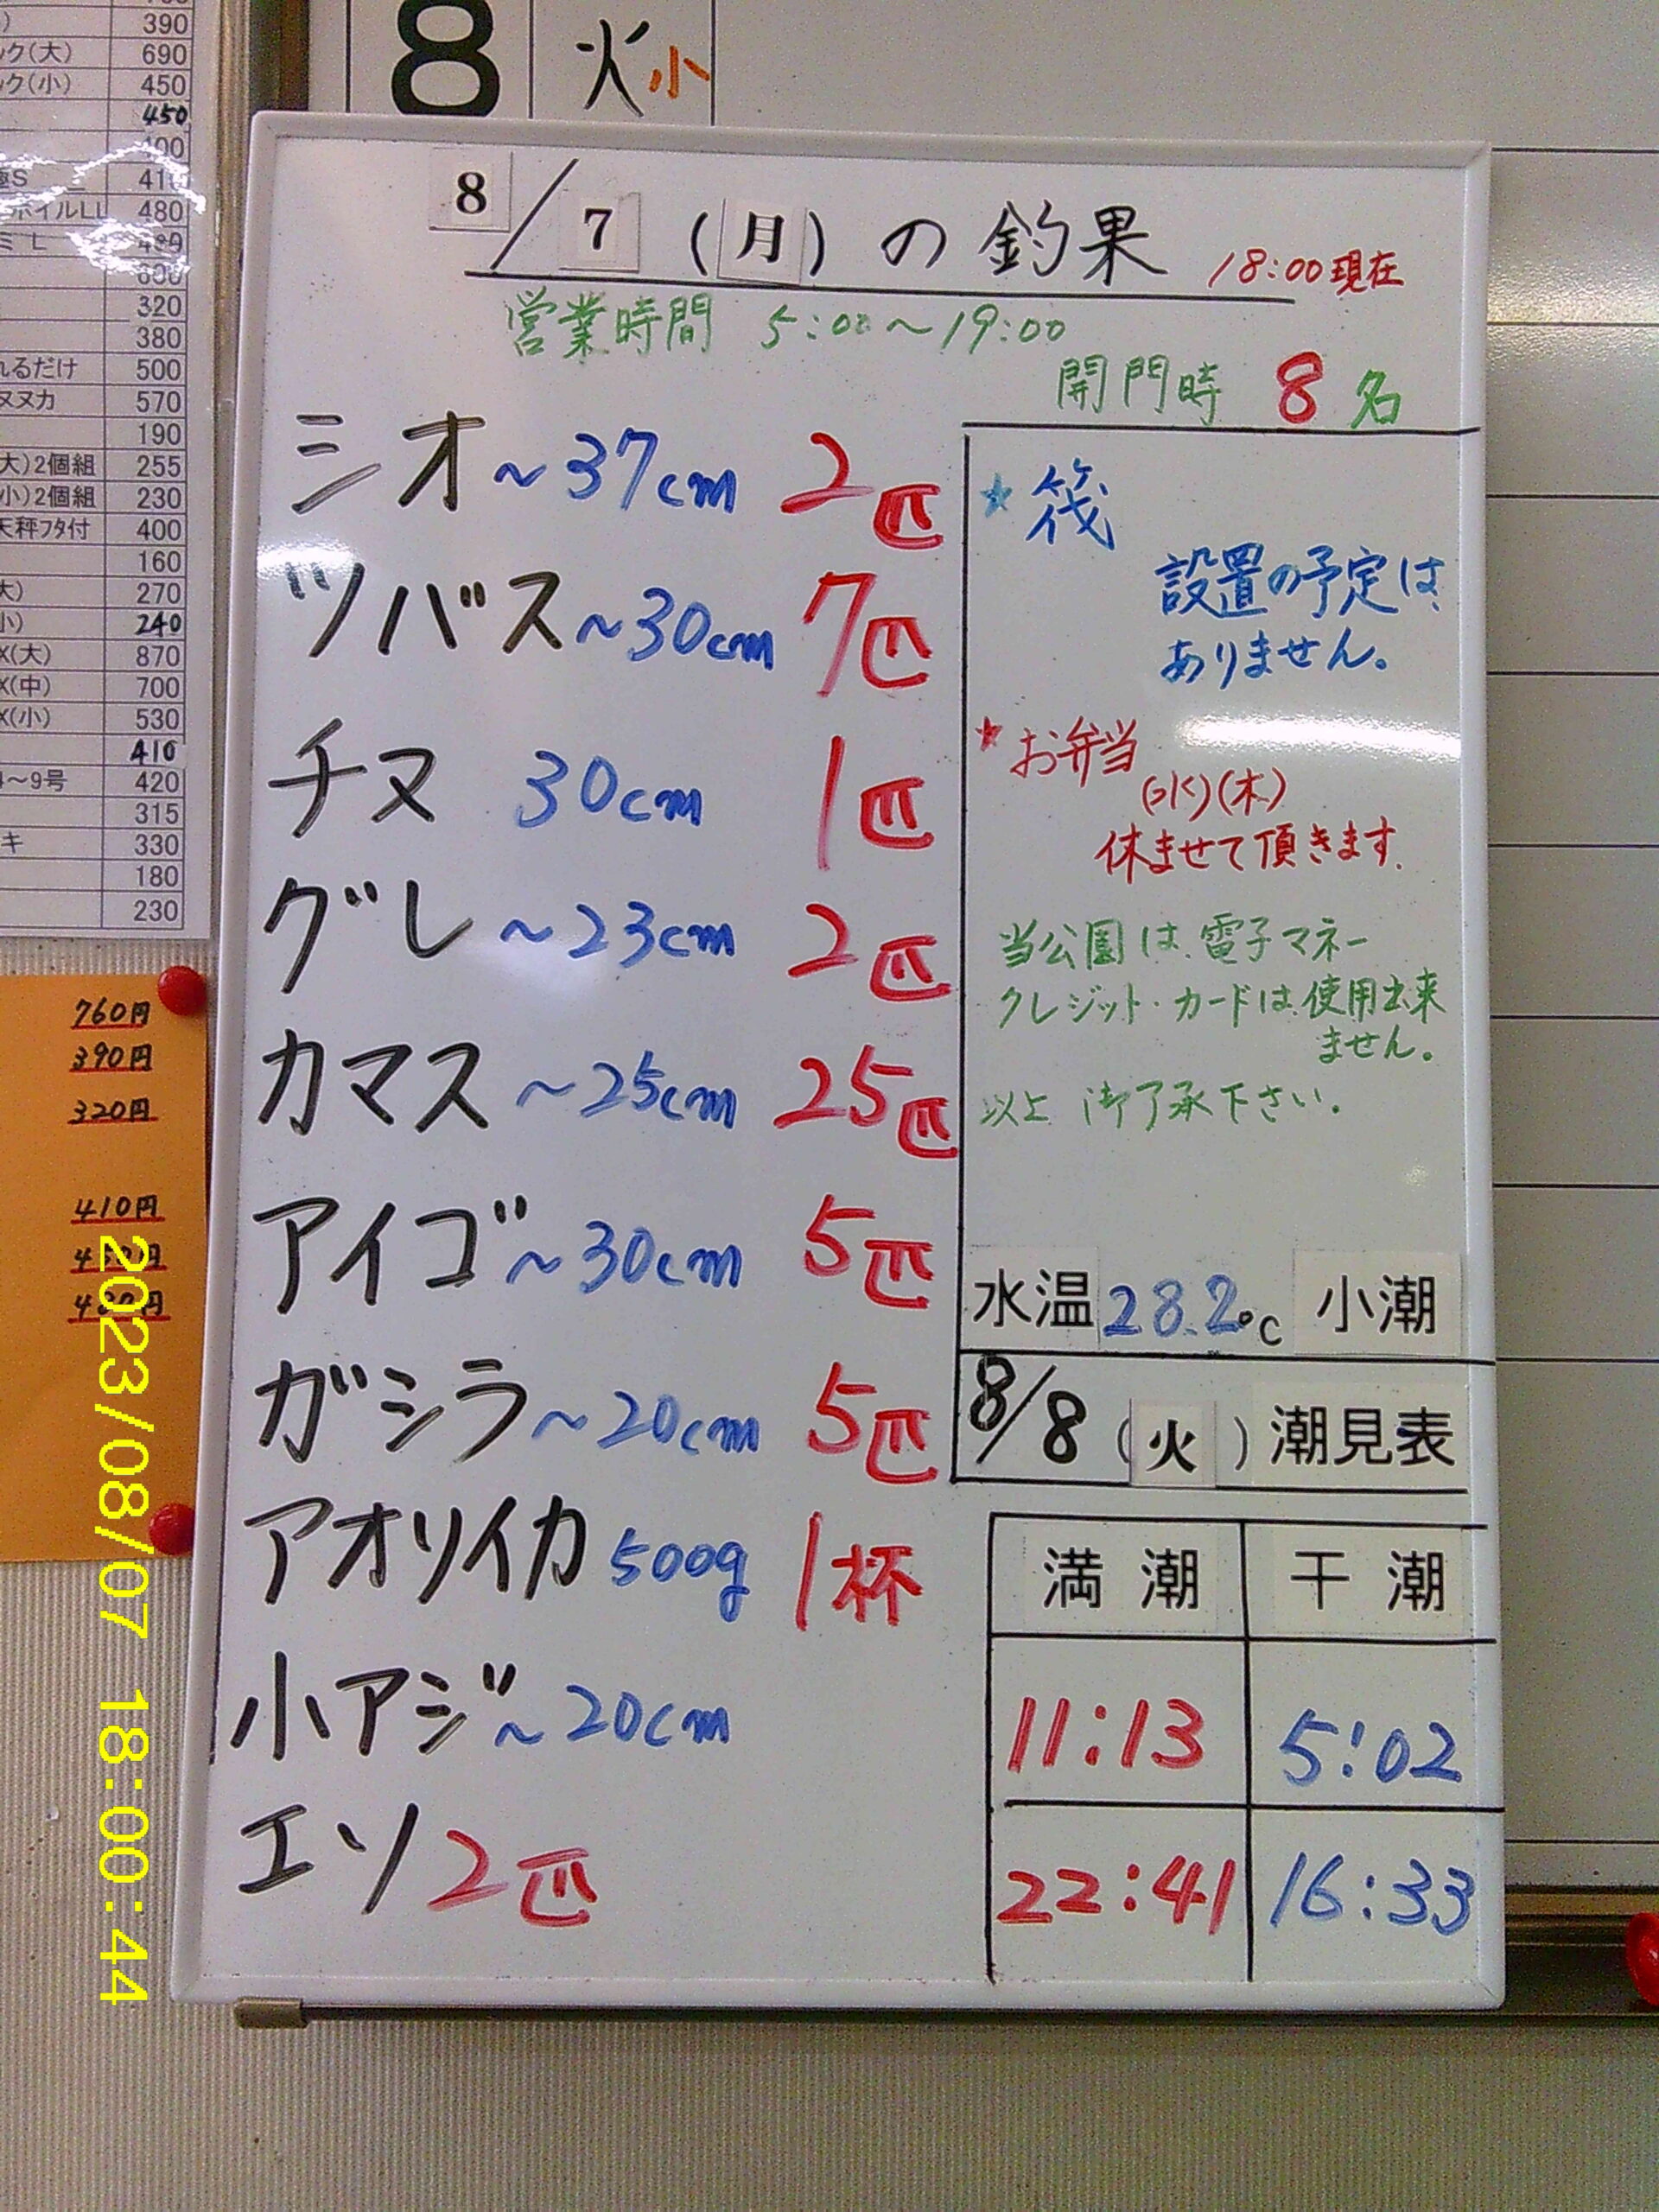 8 火 小
390
ック(大) 690
ック(小) 450
450
400
480
320
380
れるだけ 500
ヌヌカ 570
190
大)2個組 255
小)2個組 230
天秤フタ付 400
160
大) 270
小) 240
X(大) 870
X(中) 700
X(小) 530
410
4～9号 420
315
キ 330
180
230
760円
390円
320円
410円
8/7(月)の釣果 18:00現在
営業時間 5:00～19:00
開門時 8名
シオ ～37cm 2匹
ツバス ～30cm 7匹
チヌ 30cm 1匹
グレ ～23cm 2匹
カマス ～25cm 25匹
アイゴ ～30cm 5匹
ガシラ ～20cm 5匹
アオリイカ 500g 1杯
小アジ ～20cm
エソ 2匹
★筏
設置の予定は、
ありません。
★お弁当
(水)(木)
休ませて頂きます.
当公園は、電子マネー
クレジット・カードは、使用出来
ません。
以上 御了承下さい.
水温 28.2℃ 小潮
8/8(火)潮見表
満潮 干潮
11:13 5:02
22:41 16:33
2023/08/07 18:00:44